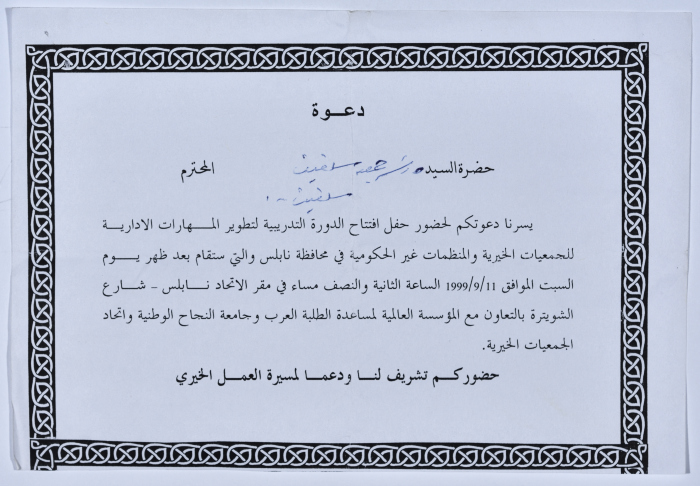 دعوة
حضرة السيد المحترم
يسرنا دعوتكم لحضور حفل افتتاح الدورة التدريبية لتطوير المهارات الادارية
للجمعيات الخيرية والمنظمات غير الحكومية في محافظة نابلس والتي ستقام بعد ظهر يوم
السبت الموافق 1999/9/11 الساعة الثانية والنصف مساء في مقر الاتحاد نابلس - شارع
الشويترة بالتعاون مع المؤسسة العالمية لمساعدة الطلبة العرب وجامعة النجاح الوطنية واتحاد
الجمعيات الخيرية.
حضوركم تشريف لنا ودعما لمسيرة العمل الخيري